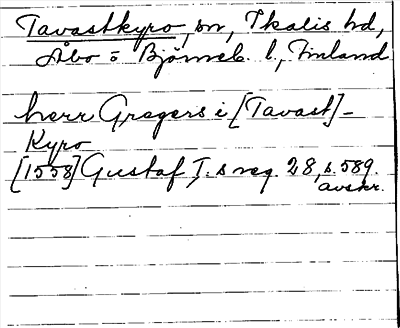 Tavastkyro, sn, Ikalis hd,
Åbo o Björneb. l, Finland
herr Gregers i [Tavast]-
Kyro
[1558] Gustaf I. s reg. 28, s. 589.
avskr.